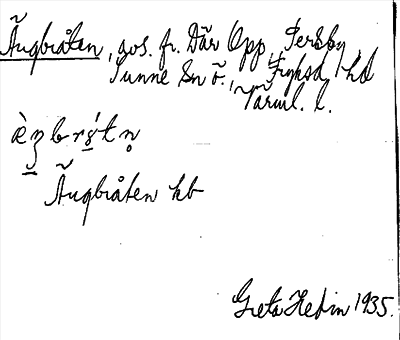 Ängbråten, gos. fr. Där Opp, Persby,
Sunne sn ö., Fryksd. hd
Värml. l.
Ängbråten kb
Greta Hedin 1935.